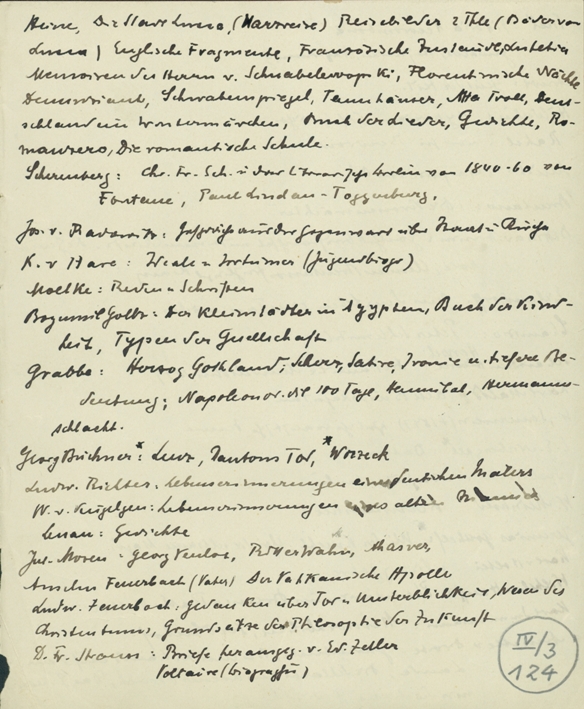 Heine, Die Stadt Lucca, (Harzreise) Reisebilder 2 Thle (Bäder von
Lucca) Englische Fragmente, Französische Zustände, Lutetia
Memoiren des Herrn v. Schnabelewopski, Florentinische Nächte
Schwabenspiegel, Tannhäuser, Atta Troll, Deut-
schland ein Wintermärchen, Buch der Lieder, Gedichte, Ro-
manzero, Die romantische Schule.
Scherenberg: Chr. Fr. Sch. u. das litterar. Berlin von 1840-60 von
Fontane, Paul Lindau - Toggenburg.
Jos. v. Radowitz: Gespräche aus der Gegenwart über Staat u. Kirche
K. v. Hase: Ideale u. Irrtümer (Jugendbiogr)
Moltke: Reden u. Schriften
Bogumil Goltz: Der Kleinstädter in Ägypten, Buch der Kind-
heit, Typen der Gesellschaft
Grabbe: Herzog Gothland, Scherz, Satire, Ironie u. tiefere Be-
deutung; Napoleon od. die 100 Tage, Hannibal, Hermann-
schlacht.
Georg Büchner*: Lenz, Dantons Tod, *Wozzeck
Ludw. Richter: Lebenserinnerungen eines deutschen Malers
W. v. Kügelgen: Lebenserinnerungen eines alten Mannes
Lenau: Gedichte
Jul. Mosen: Georg Venlot, Ritter Wahn, Ahasver,
Anselm Feuerbach (Vater) Der Vatikanische Apollo
Ludw. Feuerbach: Gedanken über Tod u. Unsterblichkeit, Wesen des
Christentums, Grundsätze der Philosophie der Zukunft
D. Fr. Strauss: Briefe herausgeg. v. Ed. Zeller
Voltaire (biographie)
IV/3
124